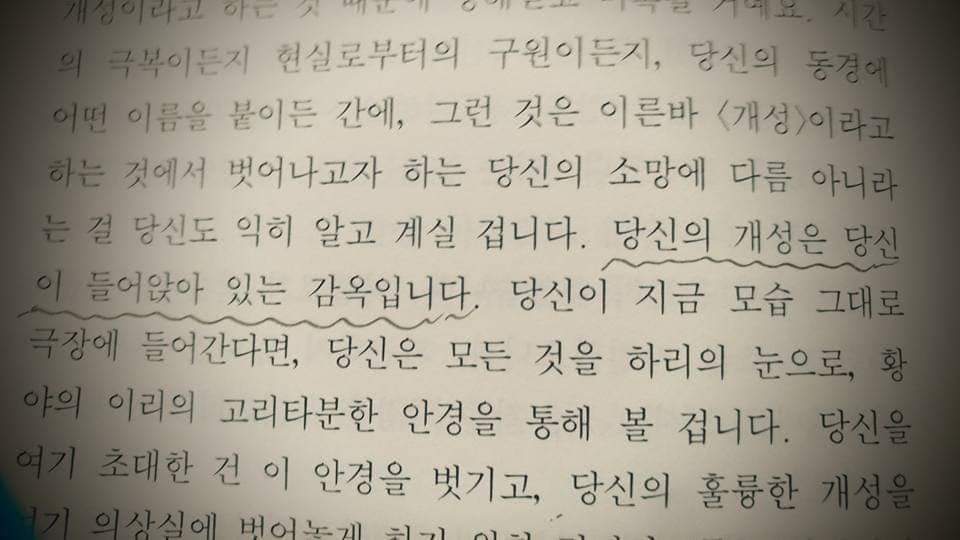 개성이라고 하는 것 때문에
의 극복이든지 현실로부터의 구원이든지, 당신의 동경에
어떤 이름을 붙이든 간에, 그런 것은 이른바 〈개성〉이라고
하는 것에서 벗어나고자 하는 당신의 소망에 다름 아니라
는 걸 당신도 익히 알고 계실 겁니다. 당신의 개성은 당신
이 들어앉아 있는 감옥입니다. 당신이 지금 모습 그대로
극장에 들어간다면, 당신은 모든 것을 하리의 눈으로, 황
야의 이리의 고리타분한 안경을 통해 볼 겁니다. 당신을
여기 초대한 건 이 안경을 벗기고, 당신의 훌륭한 개성을
여기 의상실에 벗어놓게 하기 위한